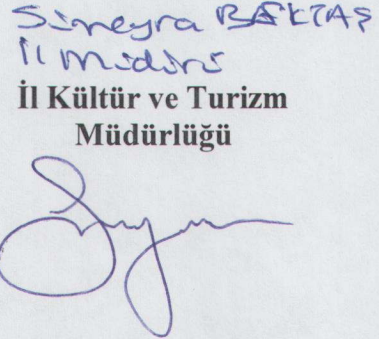 Sümeyra BAKTAŞ
İl Müdürü
İl Kültür ve Turizm
Müdürlüğü